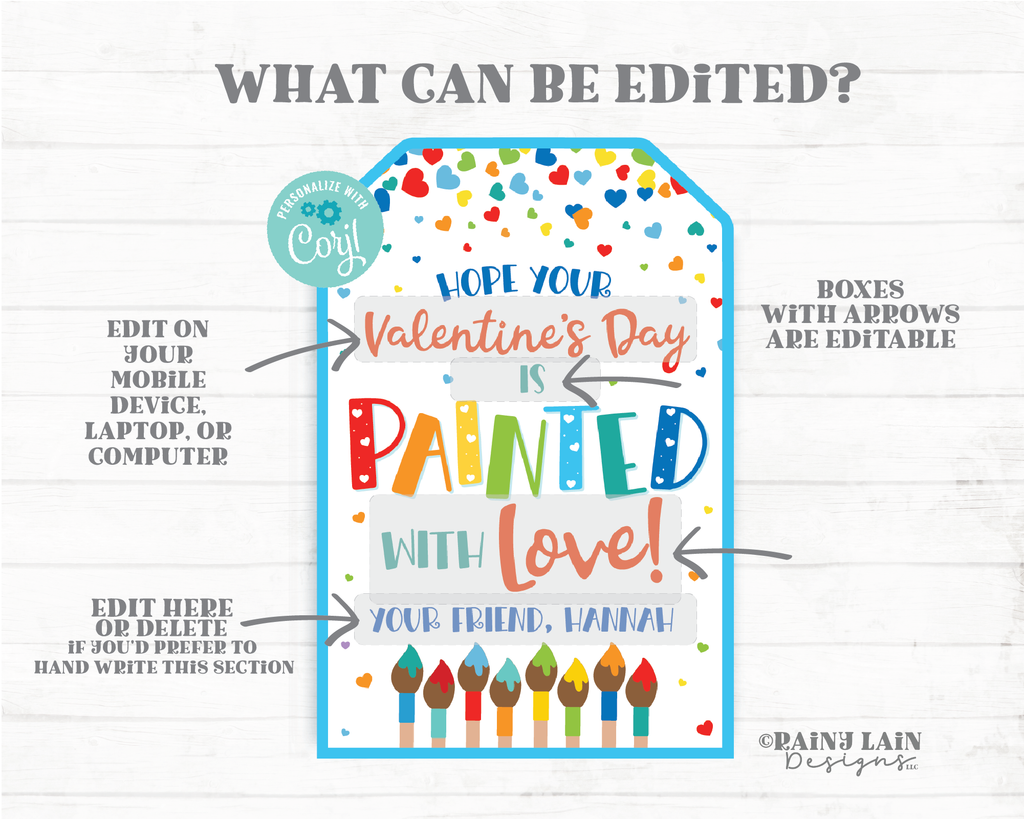 WHAT CAN BE EDiTED?
PERSONALIZE WITH
Corjl
HOPE YOUR
Valentine's Day
IS
PAINTED
WITH Love!
YOUR FRIEND, HANNAH
EDIT ON
YOUR
MOBiLE
DEViCE,
LAPTOP, OR
COMPUTER
BOXES
WiTH ARROWS
ARE EDiTABLE
EDIT HERE
OR DELETE
iF YOU'D PREFER TO
HAND WRITE THiS SECTiON
©RAiNY LAiN
Designs LLC